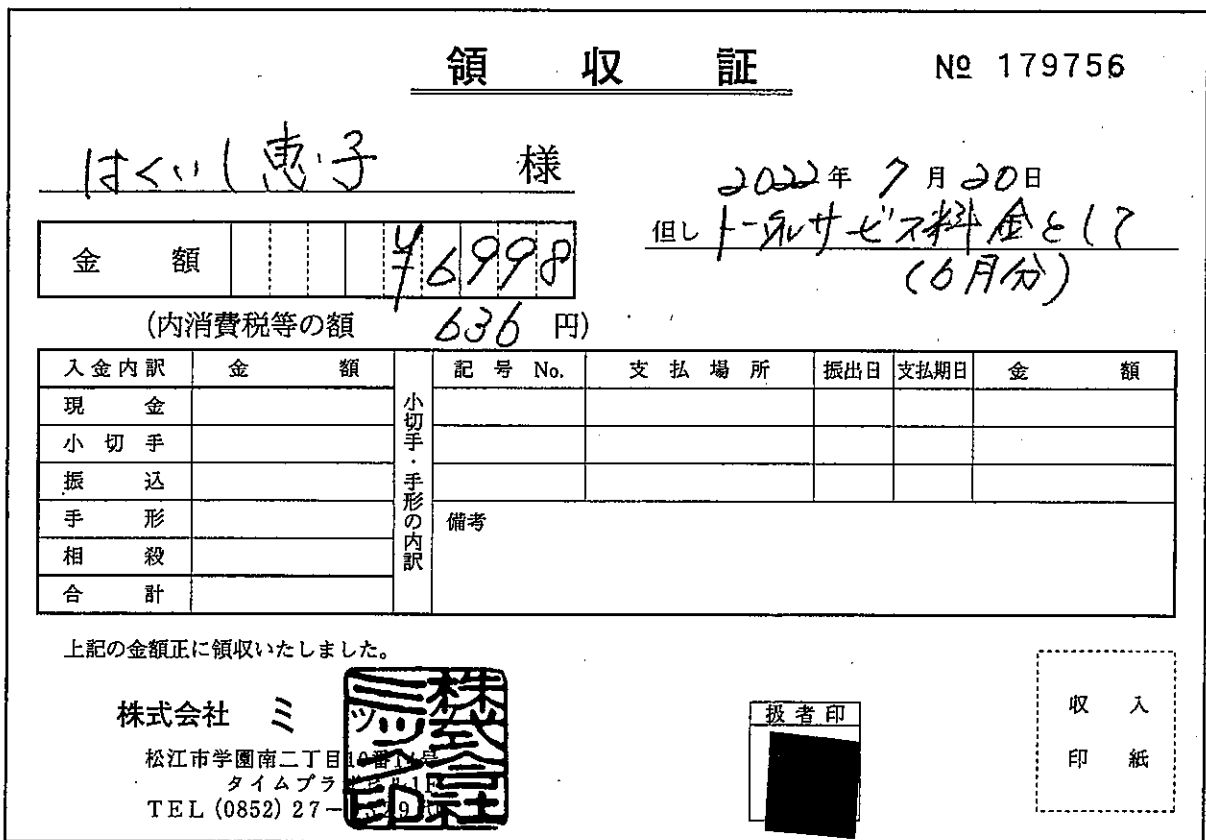 領収証
№ 179756
はくいし恵子 様
2022年 7月20日
但し トータルサービス料金として
(6月分)
金額 ¥6998
(内消費税等の額 636 円)
入金内訳 金額
現金
小切手
振込
手形
相殺
合計
小切手・手形の内訳
記号 No. 支払場所 振出日 支払期日 金額
備考
上記の金額正に領収いたしました。
株式会社 ミツ
株式会社ミック印
松江市学園南二丁目
タイムプラ
TEL (0852) 27-
扱者印
収入
印紙